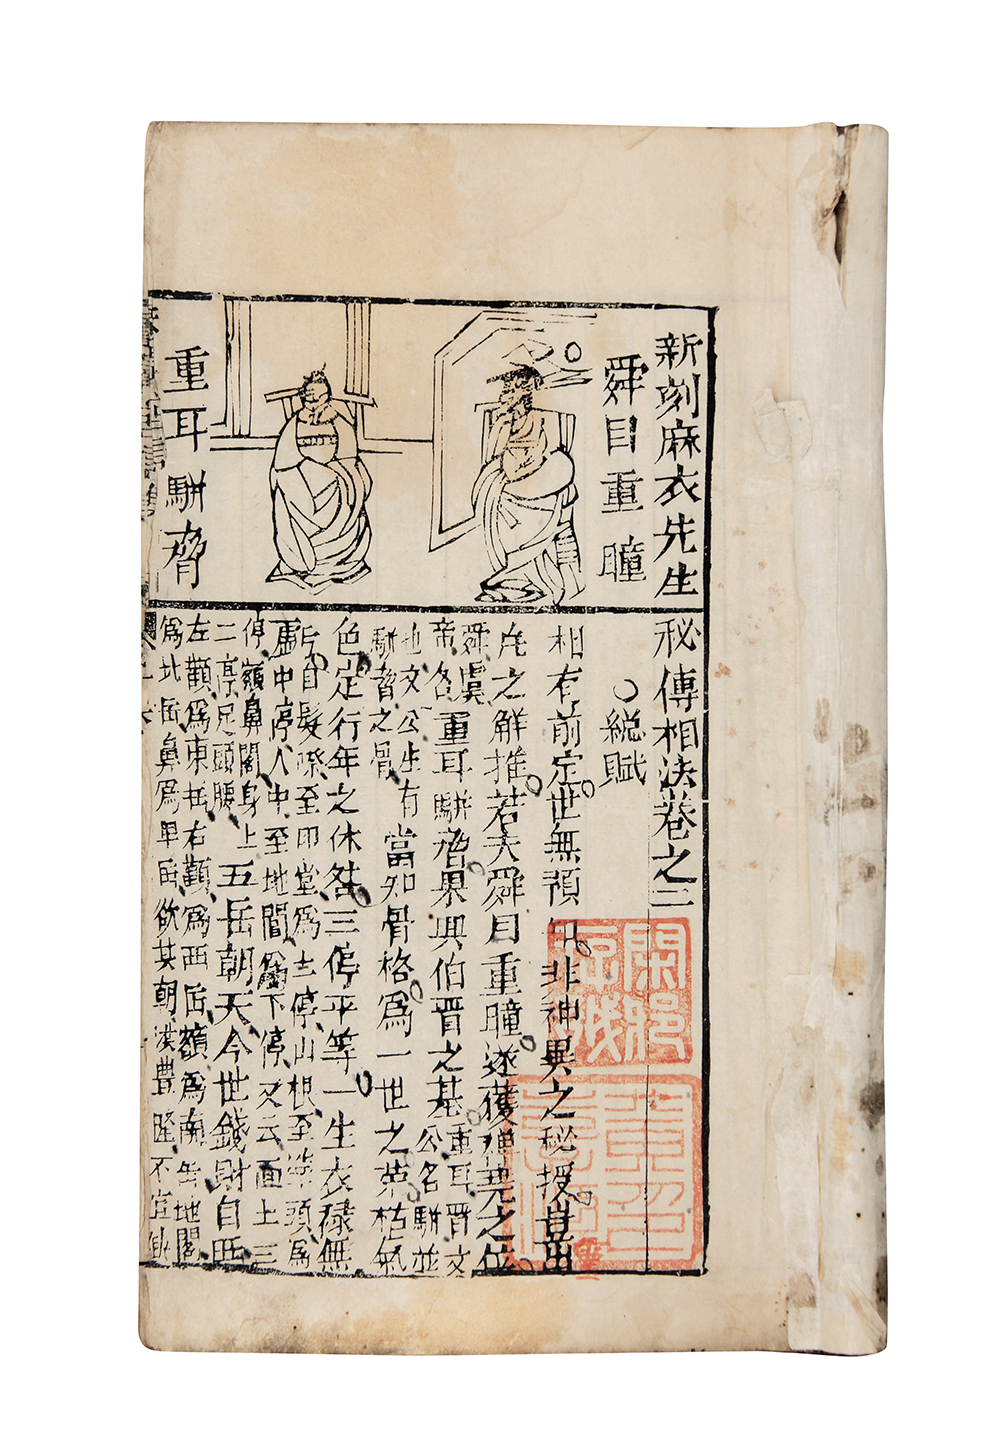 新刻麻衣先生秘傳相法卷之三
舜目重瞳
重耳駢脅
總賦
相有前定世無預知非神異之秘授豈出
凡之解推若夫舜目重瞳遂獲禪堯之位
舜虞
帝名重耳駢脅果興伯晋之基重耳晋文
公名駢並
也文公生有
駢脅之骨當知骨格爲一世之荣枯氣
色定行年之休咎三停平等一生衣祿無
虧自髮際至印堂爲上停山根至準頭爲
中停人中至地閣爲下停又云面上三
停額鼻閣身上
二停足頭腰五岳朝天今世錢財自旺
左顴爲東岳右顴爲西岳額爲南岳地閣
爲北岳鼻爲中岳欲其朝拱豊隆不宜缺